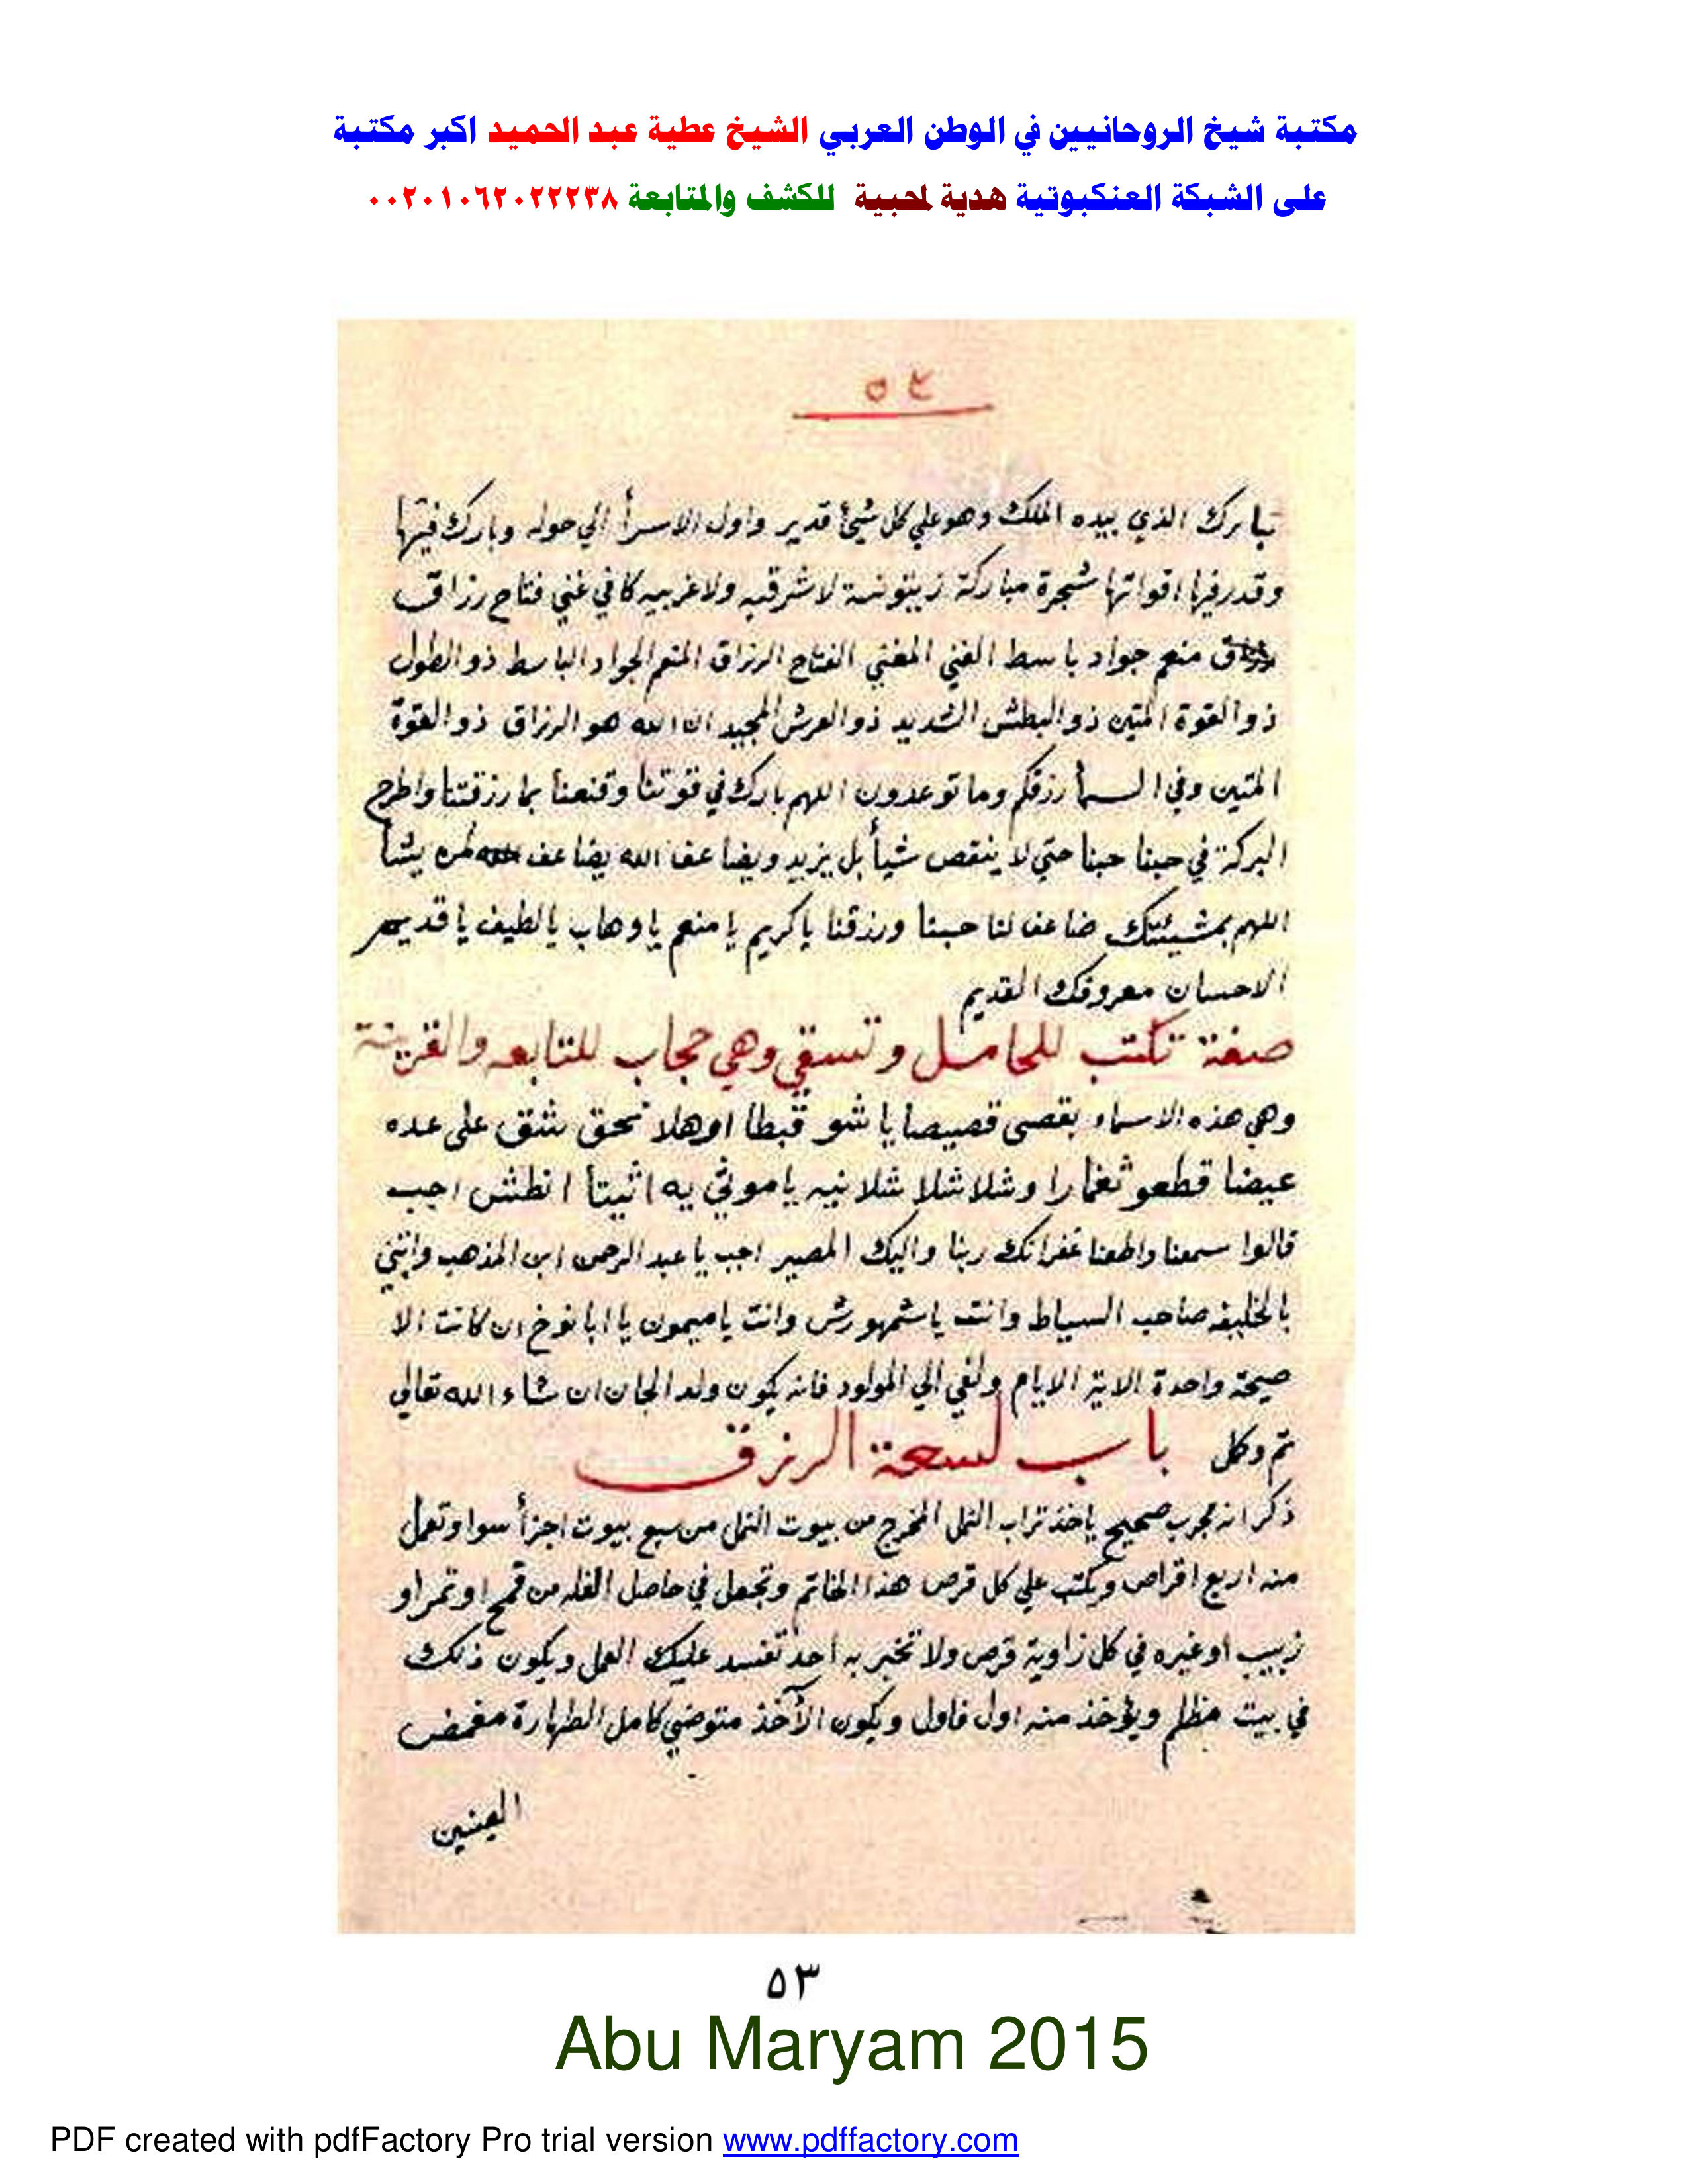 مكتبة شيخ الروحانيين في الوطن العربي الشيخ عطية عبد الحميد اكبر مكتبة
على الشبكة العنكبوتية هدية لمحبية للكشف والمتابعة ٠٠٢٠١٠٦٢٠٢٢٢٣٨
تبارك الذي بيده الملك وهو علي كل شيئ قدير واول الاسرأ الي حوله وبارك فيها
وقدر فيها اقواتها شجرة مباركة زيتونة لا شرقيه ولا غربيه كافي غني فتاح رزاق
منعم جواد باسط الغني المغني الفتاح الرزاق المنعم الجواد الباسط ذو الطول
ذو القوة المتين ذو البطش الشديد ذو العرش المجيد ان الله هو الرزاق ذو القوة
المتين وفي السمأ رزقكم وما توعدون اللهم بارك في قوتنا وقنعنا بما رزقتنا واطرح
البركة في حبنا حبنا حتي لا ينقص شيأ بل يزيد ويضاعف الله يضاعف لمن يشأ
اللهم بمشيئتك ضاعف لنا حبنا ورزقنا ياكريم يا منعم يا وهاب يا لطيف يا قديم
الاحسان معروفك القديم
صفة تكتب للحامل وتسقي وهي حجاب للتابعه والقرينة
وهي هذه الاسماء بقصى قصيصا يا شو قبطا اوهلا بحق شقق على عده
عيضا قطعو ثغمارا وشلا شلا شلانيه يا موثي يه اثيتأ انطش اجب
قالوا سمعنا واطعنا غفرانك ربنا واليك المصير اجب يا عبد الرحمن ابن المذهب وائتني
بالخليفه صاحب السياط وانت يا شمهورش وانت يا ميمون يا ابا نوخ ان كانت الا
صيحة واحدة الاية الايام ولغي الي المولود فانه يكون ولد الجان ان شاء الله تعالي
تم وكل باب لسعة الرزق
ذكر انه مجرب صحيح ياخذ تراب النمل المخرج من بيوت النمل من سبع بيوت اجزأ سوا وتعمل
منه اربع اقراص ويكتب علي كل قرص هذا الخاتم وتجعل في حاصل الغله من قمح او تمر او
زبيب او غيره في كل زاوية قرص ولا تخبر به احد تفسد عليك العمل ويكون ذلك
في بيت مظلم ويؤخذ منه اول فاول ويكون الآخذ متوضي كامل الطهارة مغمض
العينين
٥٣
Abu Maryam 2015
PDF created with pdfFactory Pro trial version www.pdffactory.com